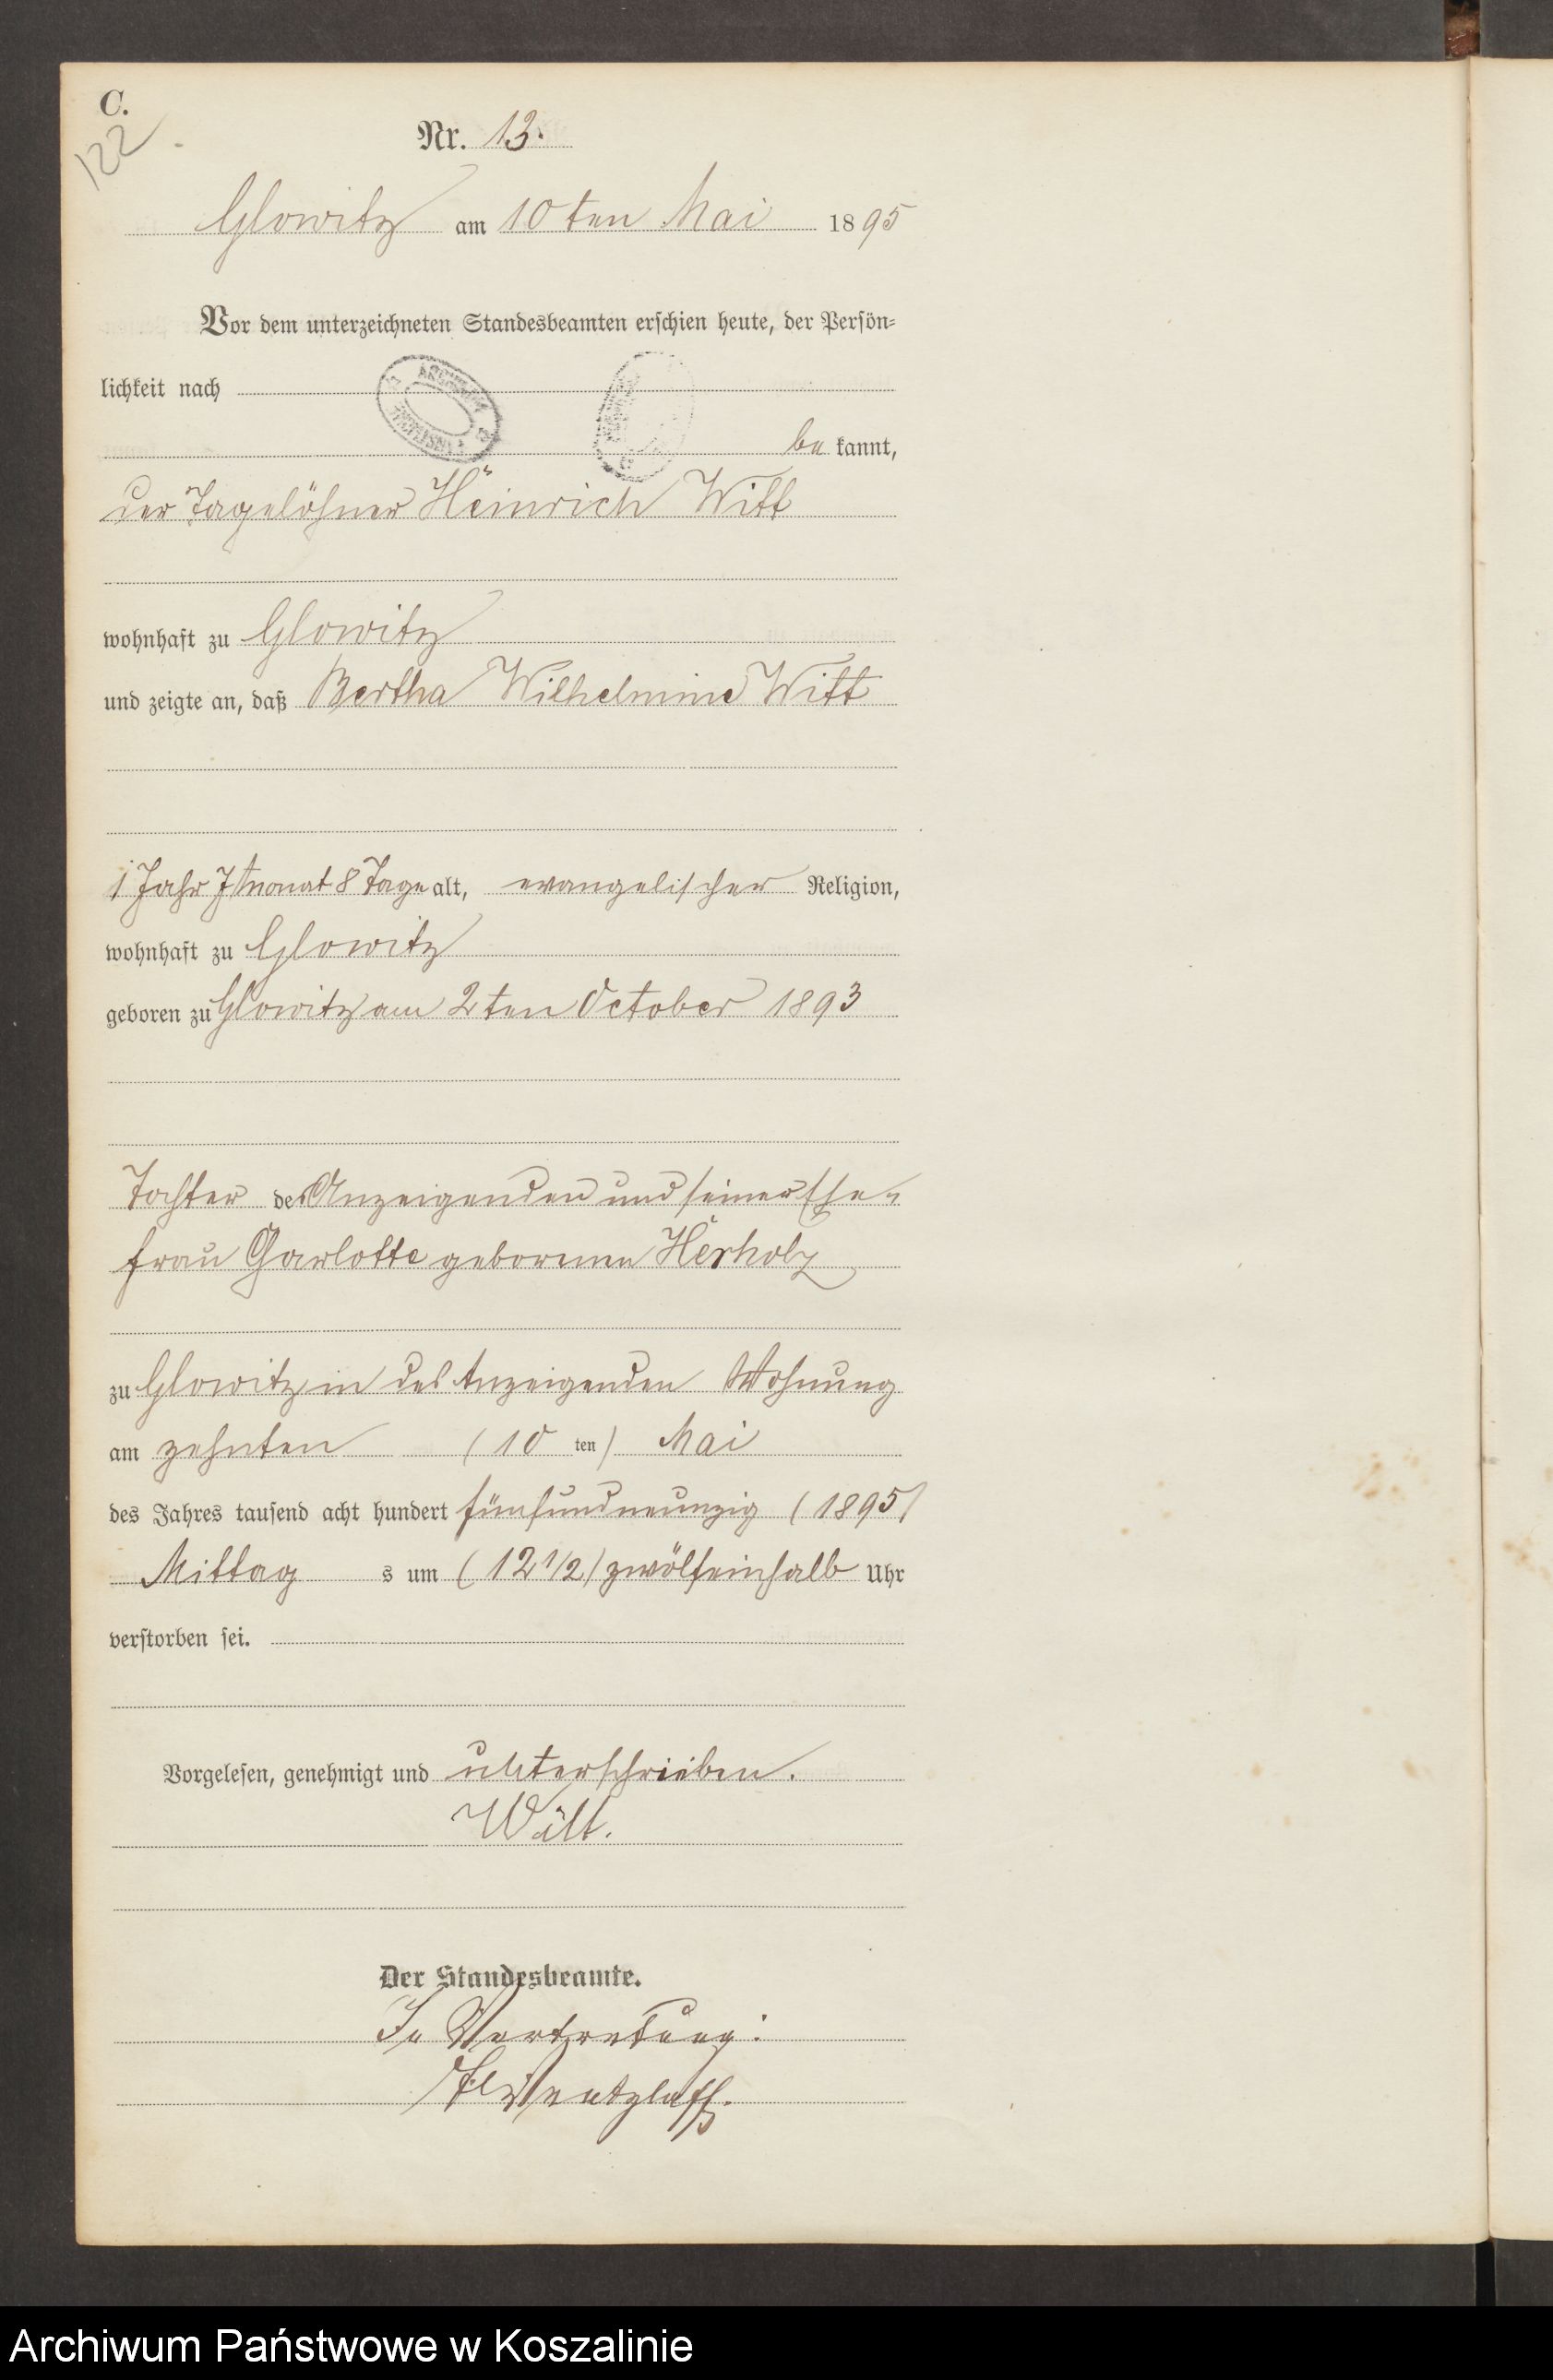 C.
122
Nr. 13.
Glowitz am 10ten Mai 1895
Vor dem unterzeichneten Standesbeamten erschien heute, der Persön-
lichkeit nach
be kannt,
der Tagelöhner Heinrich Witt
wohnhaft zu Glowitz
und zeigte an, daß Bertha Wilhelmine Witt
1 Jahr 7 Monat 8 Tage alt, evangelischer Religion,
wohnhaft zu Glowitz
geboren zu Glowitz am 2ten October 1893
Tochter des Anzeigenden und seiner Ehe-
frau Charlotte geborenen Herholz
zu Glowitz in des Anzeigenden Wohnung
am zehnten (10 ten) Mai
des Jahres tausend acht hundert fünfundneunzig (1895)
Mittag s um (12 1/2) zwölfeinhalb Uhr
verstorben sei.
Vorgelesen, genehmigt und unterschrieben.
Witt.
Der Standesbeamte.
In Vertretung:
Archiwum Państwowe w Koszalinie